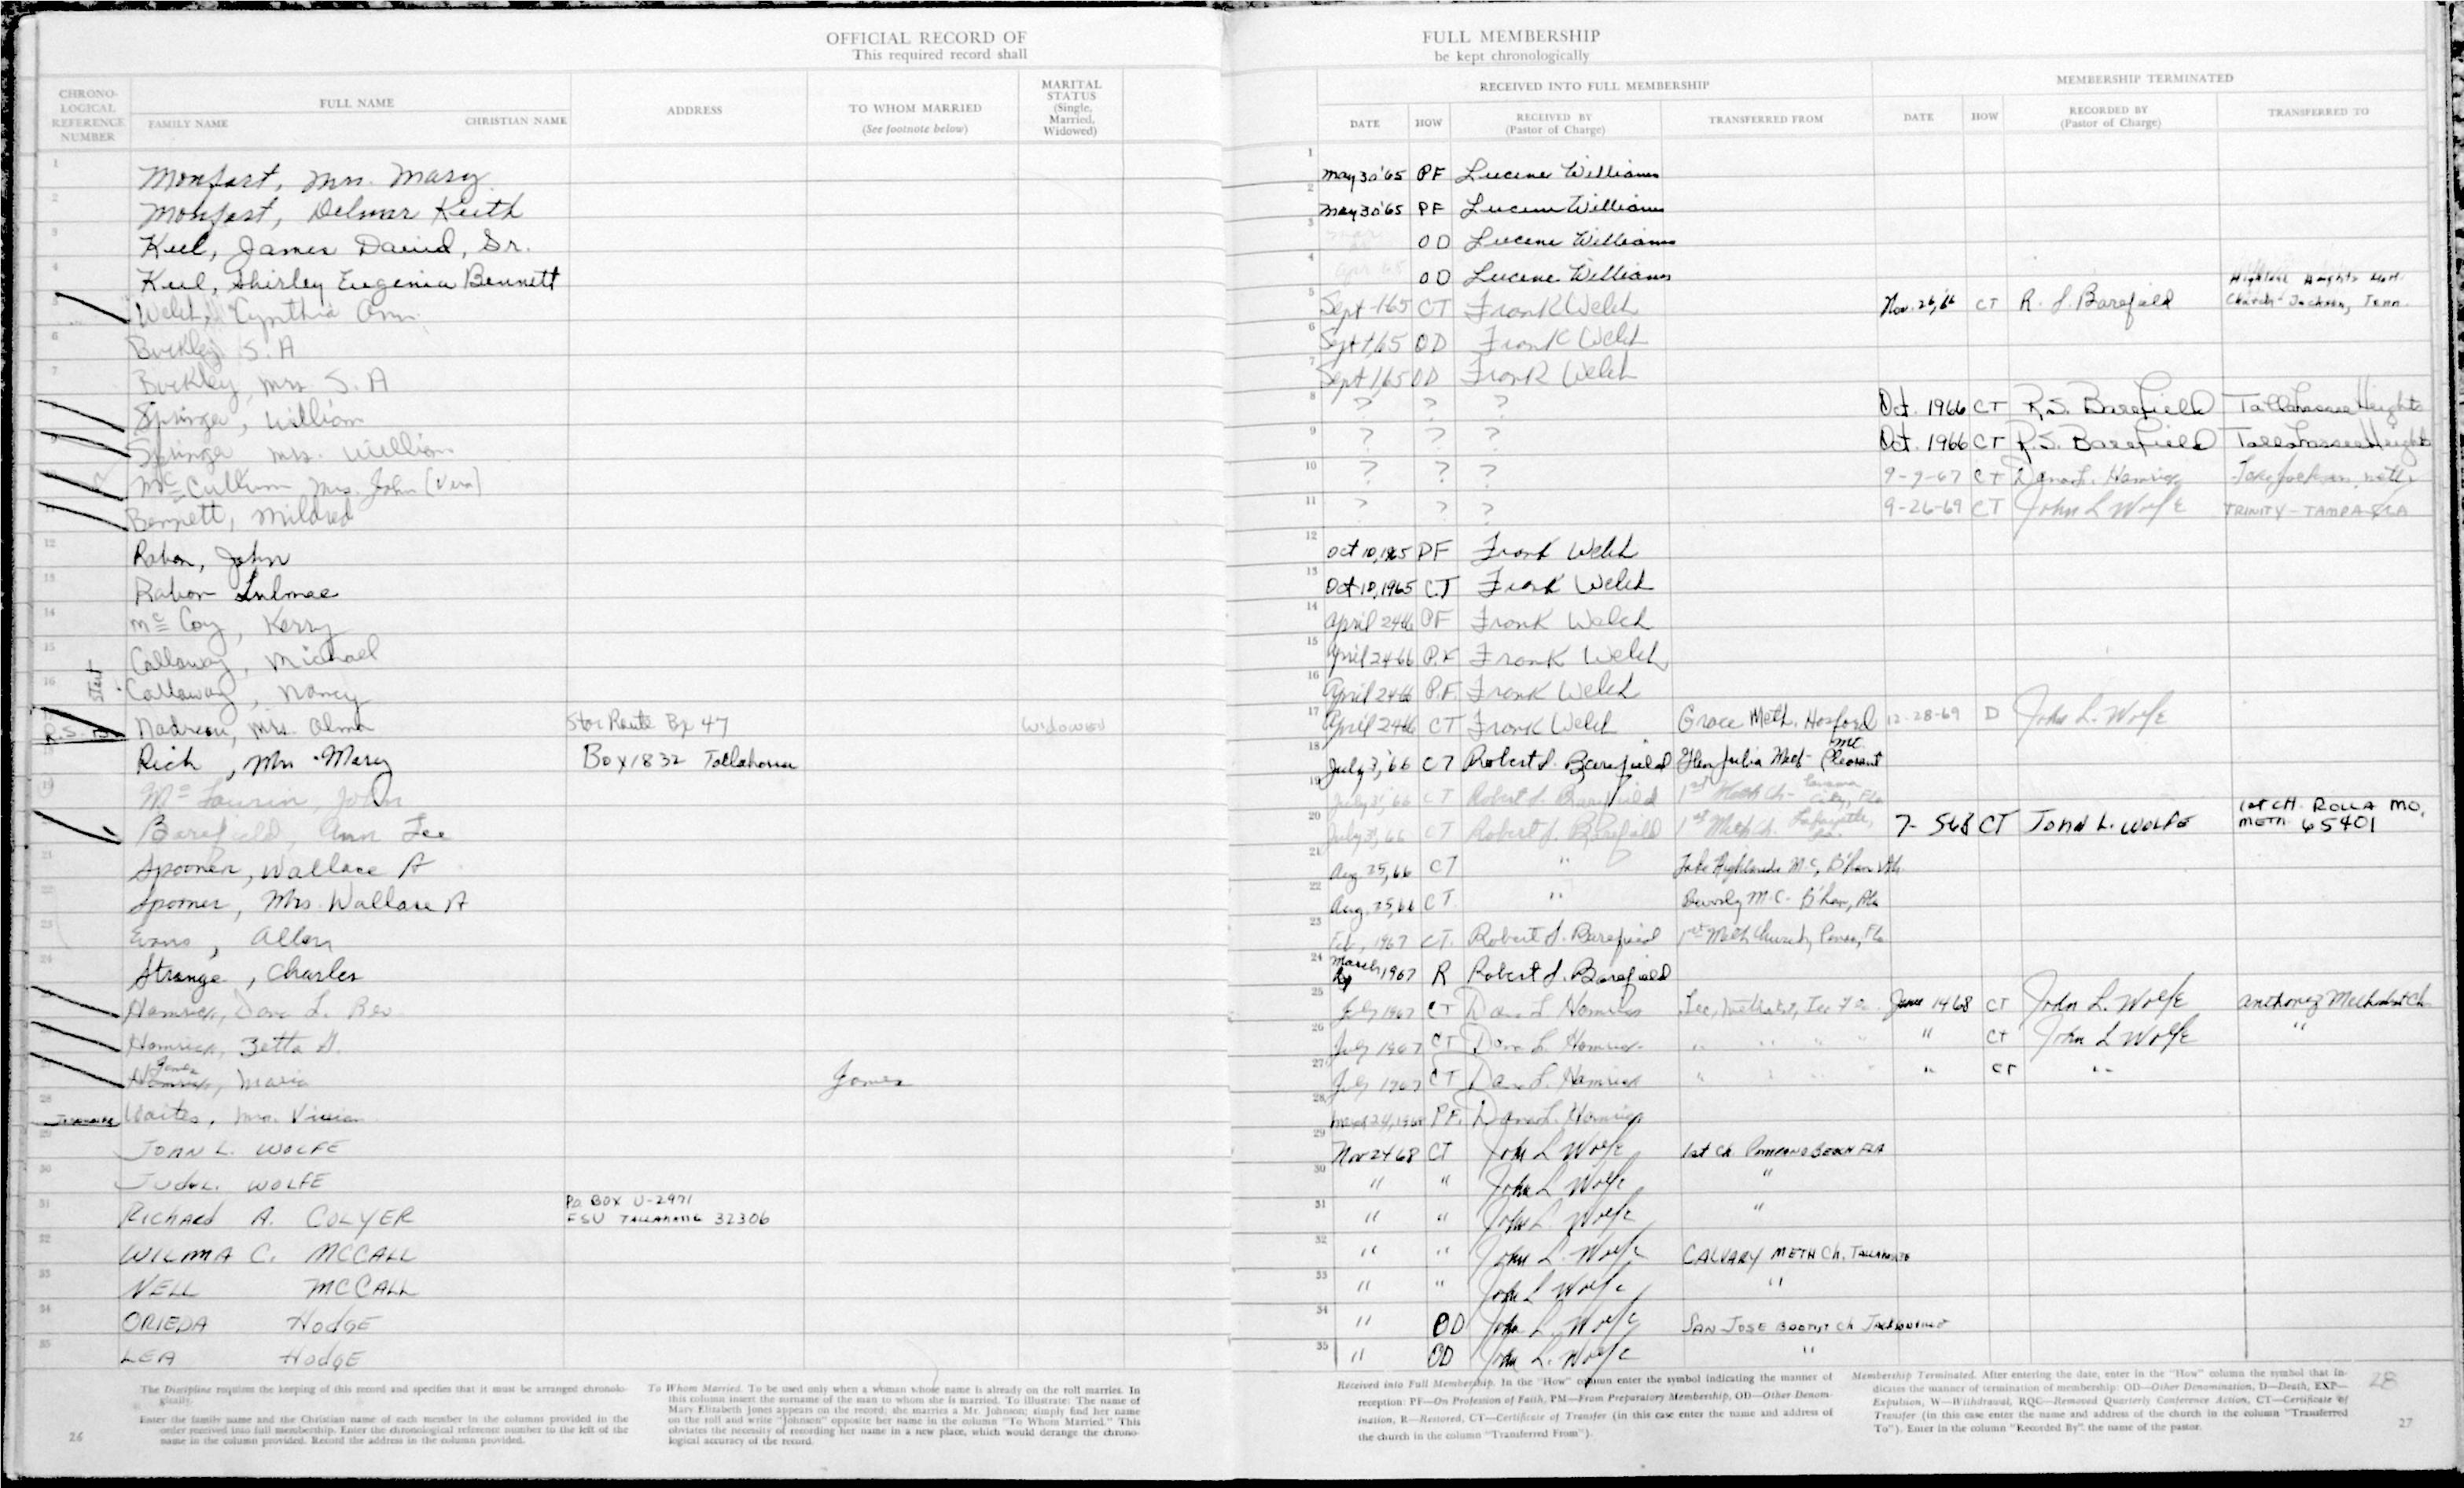 OFFICIAL RECORD OF
This required record shall
CHRONO-
LOGICAL
REFERENCE
NUMBER
FULL NAME
FAMILY NAME CHRISTIAN NAME
ADDRESS
TO WHOM MARRIED
(See footnote below)
MARITAL
STATUS
(Single,
Married,
Widowed)
1 Monfort, Mrs. Mary
2 Monfort, Delmar Keith
3 Kiel, James David, Sr.
4 Kiel, Shirley Eugenia Bennett
5 Welch, Cynthia Ann
6 Buckley S. A
7 Buckley, Mrs S. A
8 Springer, William
9 Springer Mrs. William
10 McCullum Mrs. John (Vera)
11 Bennett, Mildred
12 Rabon, John
13 Rabon Lulmae
14 McCoy, Kerry
15 Callaway, Michael
16 Callaway, Nancy
17 Mrs. Alma Star Route Bx 47 Widowed
18 Rich, Mrs Mary Box 1832 Tallahassee
19 McLaurin, John
20 Barefield, Ann Lee
21 Spooner, Wallace A
22 Spooner, Mrs. Wallace A
23 Evans, Allen
24 Strange, Charles
25 Hamrick, Dana L. Rev.
26 Hamrick, Zetta G.
Jones
27 Hamrick, Maria Jones
28 Waites, Mrs. Vivian
29 JOHN L. WOLFE
30 JUDY L. WOLFE
P.O. BOX U-2971
31 RICHARD A. COLYER FSU TALLAHASSEE 32306
32 WILMA C. MCCALL
33 NELL MCCALL
34 ORIEDA HODGE
35 LEA HODGE
The Discipline requires the keeping of this record and specifies that it must be arranged chronolo-
gically.
Enter the family name and the Christian name of each member in the columns provided in the
order received into full membership. Enter the chronological reference number to the left of the
name in the column provided. Record the address in the column provided.
To Whom Married. To be used only when a woman whose name is already on the roll marries. In
this column insert the surname of the man to whom she is married. To illustrate: The name of
Mary Elizabeth Jones appears on the record; she marries a Mr. Johnson; simply find her name
on the roll and write "Johnson" opposite her name in the column "To Whom Married." This
obviates the necessity of recording her name in a new place, which would derange the chrono-
logical accuracy of the record.
26
FULL MEMBERSHIP
be kept chronologically
RECEIVED INTO FULL MEMBERSHIP
MEMBERSHIP TERMINATED
DATE HOW RECEIVED BY
(Pastor of Charge) TRANSFERRED FROM DATE HOW RECORDED BY
(Pastor of Charge) TRANSFERRED TO
1 May 30 '65 PF Lucene Williams
2 May 30 '65 PF Lucene Williams
3 OD Lucene Williams
4 Apr 65 OD Lucene Williams
5 Sept-1 65 CT Frank Welch Nov. 26, 66 CT R. S. Barefield Highland Heights Meth. Church-Jackson, Tenn.
6 Sept 1, 65 OD Frank Welch
7 Sept 1, 65 OD Frank Welch
8 ? ? ? Oct. 1966 CT R.S. Barefield Tallahassee Heights
9 ? ? ? Oct. 1966 CT R.S. Barefield Tallahassee Heights
10 ? ? ? 9-9-67 CT Dana L. Hamrick Lake Jackson Meth.
11 ? ? ? 9-26-69 CT John L Wolfe TRINITY - TAMPA FLA
12 Oct 10, 1965 PF Frank Welch
13 Oct 10, 1965 C.T Frank Welch
14 April 24 66 PF Frank Welch
15 April 24 66 P.F Frank Welch
16 April 24 66 P.F. Frank Welch
17 April 24 66 CT Frank Welch Grace Meth. Hosford 12-28-69 D John L. Wolfe
18 July 3, '66 CT Robert S. Barefield Glen Julia Meth- Mt. Pleasant
19 July 31, '66 CT Robert S. Barefield 1st Meth Ch- Panama City, Fla
20 July 31, 66 CT Robert S. Barefield 1st Meth Ch. Lafayette, 7- 5 68 CT JOHN L. WOLFE 1st CH. ROLLA MO. METH. 65401
21 Aug 25, 66 CT " Lake Highlands M.C, B'ham Ala.
22 Aug. 25, 66 CT. " Beverly M.C. B'ham, Ala
23 Feb, 1967 CT. Robert S. Barefield 1st Meth Church, Fla
24 March 1967 R Robert S. Barefield
25 July 1967 CT Dana L Hamrick Lee, Methodist, Lee Fla. June 14 68 CT John L. Wolfe Anthony Methodist Ch
26 July 1967 CT Dana L. Hamrick " " " " " CT John L Wolfe "
27 July 1967 CT Dana L. Hamrick " " " " CT "
28 March 24, 1968 PF. Dana L. Hamrick
29 Nov 24 68 CT John L Wolfe 1st Ch POMPANO BEACH FLA
30 " " John L Wolfe "
31 " " John L. Wolfe "
32 " " John L. Wolfe CALVARY METH Ch. TALLAHASSEE
33 " " John L Wolfe "
34 " OD John L. Wolfe SAN JOSE BAPTIST Ch JACKSONVILLE
35 " OD John L. Wolfe "
Received into Full Membership. In the "How" column enter the symbol indicating the manner of
reception: PF—On Profession of Faith, PM—From Preparatory Membership, OD—Other Denom-
ination, R—Restored, CT—Certificate of Transfer (in this case enter the name and address of
the church in the column "Transferred From").
Membership Terminated. After entering the date, enter in the "How" column the symbol that in-
dicates the manner of termination of membership: OD—Other Denomination, D—Death, EXP—
Expulsion, W—Withdrawal, RQC—Removed Quarterly Conference Action, CT—Certificate of
Transfer (in this case enter the name and address of the church in the column "Transferred
To"). Enter in the column "Recorded By" the name of the pastor.
28
27